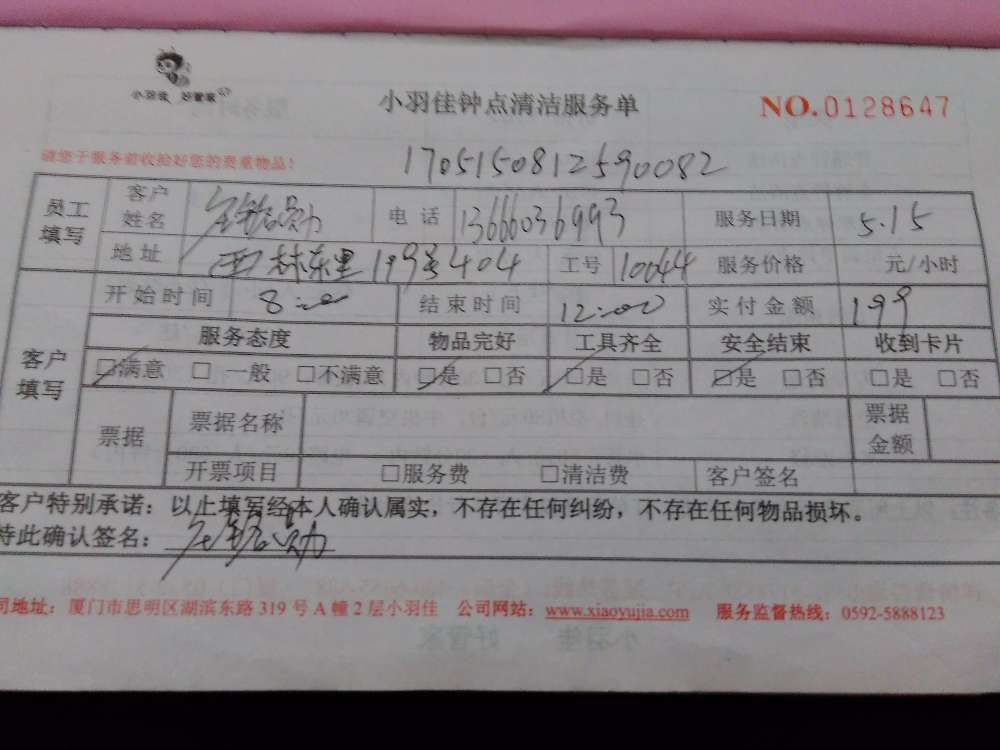 小羽佳 好管家
小羽佳钟点清洁服务单
NO.0128647
请您于服务前收拾好您的贵重物品!
170515081259 0082
员工填写 客户姓名 电话 13666036993 服务日期 5.15
地址 西林东里199号404 工号 10044 服务价格 元/小时
客户填写 开始时间 8:00 结束时间 12:00 实付金额 199
服务态度 物品完好 工具齐全 安全结束 收到卡片
☑满意 □一般 □不满意 ☑是 □否 ☑是 □否 ☑是 □否 □是 □否
票据 票据名称 票据金额
开票项目 □服务费 □清洁费 客户签名
客户特别承诺:以止填写经本人确认属实,不存在任何纠纷,不存在任何物品损坏。
特此确认签名:
司地址:厦门市思明区湖滨东路 319 号 A 幢 2 层小羽佳 公司网站:www.xiaoyujia.com 服务监督热线:0592-5888123
小羽佳 好管家